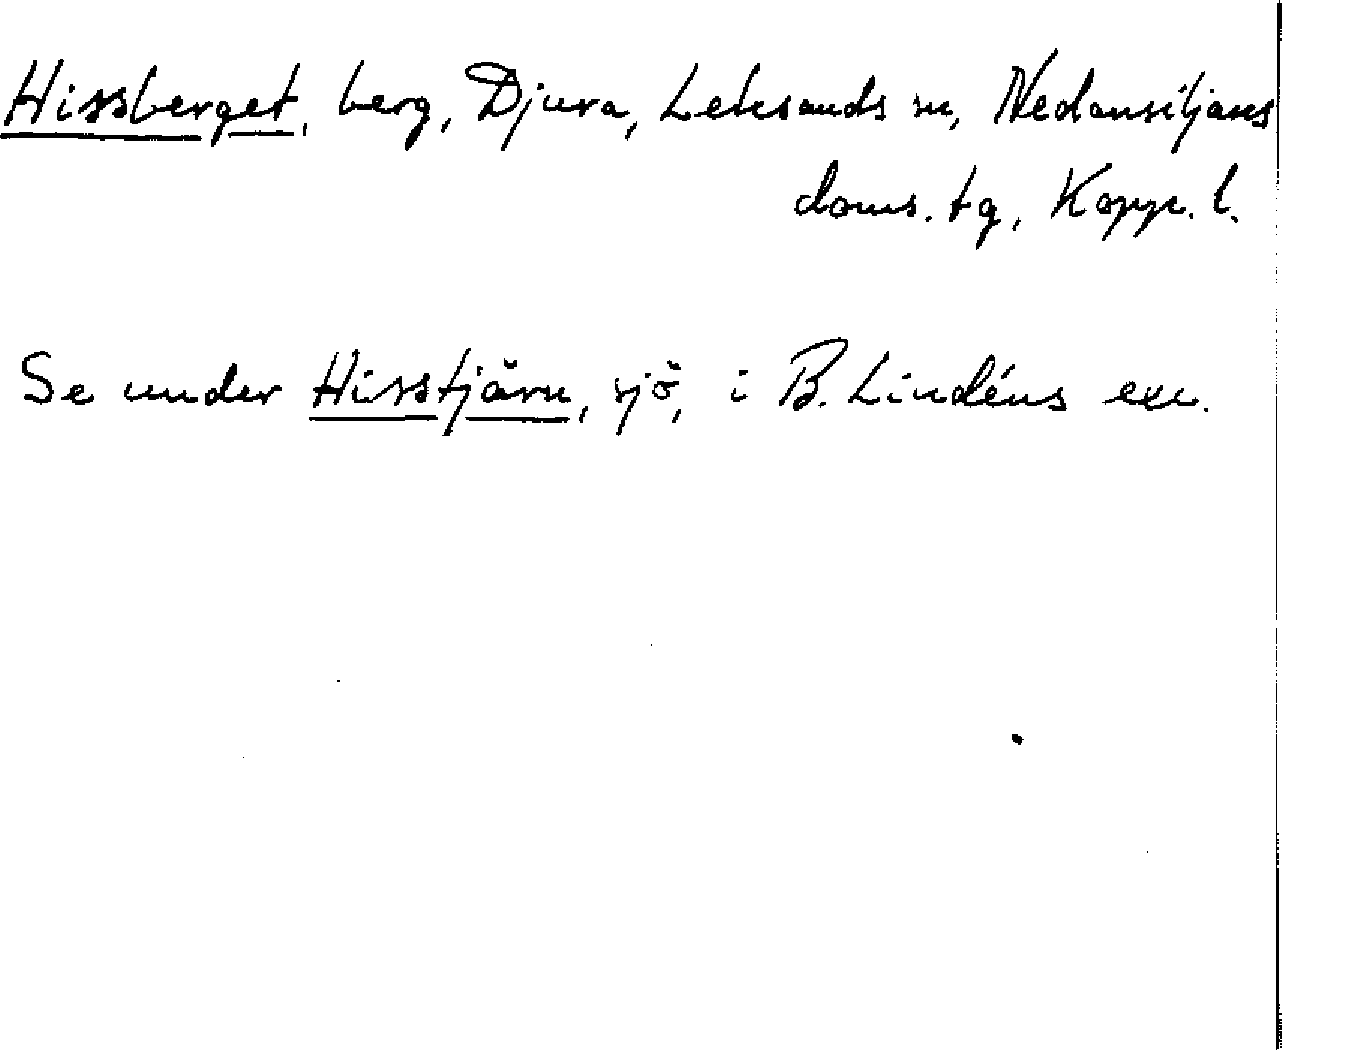 Hissberget, berg, Djura, Leksands sn, Nedansiljans
doms. tg, Kopp. l.
Se under Hisstjärn, sjö, i B. Lindéns exc.